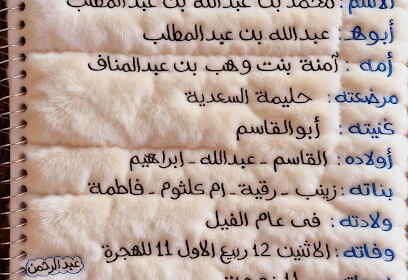 الاسم : محمد بن عبدالله بن عبدالمطلب
أبوه : عبدالله بن عبدالمطلب
أمه : آمنة بنت وهب بن عبدالمناف
مرضعته : حليمة السعدية
كنيته : أبو القاسم
أولاده : القاسم - عبدالله - ابراهيم
بناته : زينب - رقية - ام كلثوم - فاطمة
ولادته : فى عام الفيل
وفاته : الاثنين 12 ربيع الاول 11 للهجرة
عبدالرحمن